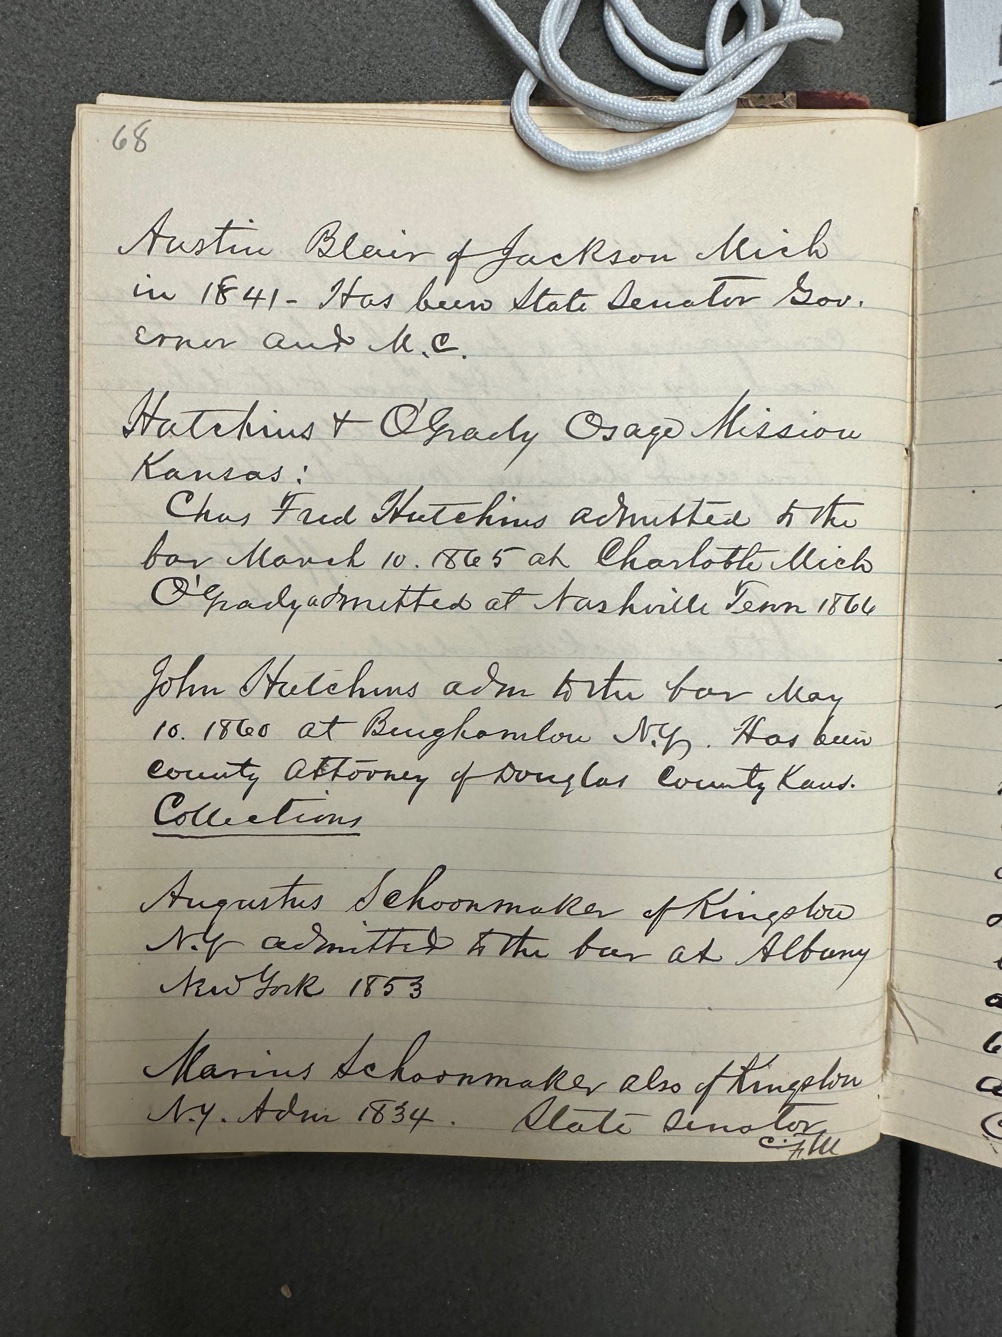 68
Austin Blair of Jackson Mich
in 1841 - Has been State Senator Gov.
ernor and M.C.
Hutchins & O'Grady Osage Mission
Kansas:
Chas Fred Hutchins admitted to the
bar March 10. 1865 at Charlotte Mich
O'Grady admitted at Nashville Tenn 1866
John Hutchins adm to the bar May
10. 1860 at Binghamton N.Y. Has been
county Attorney of Douglas County Kans.
Collections
Augustus Schoonmaker of Kingston
N.Y admitted to the bar at Albany
New York 1853
Marius Schoonmaker also of Kingston
N.Y. Adm 1834. State Senator